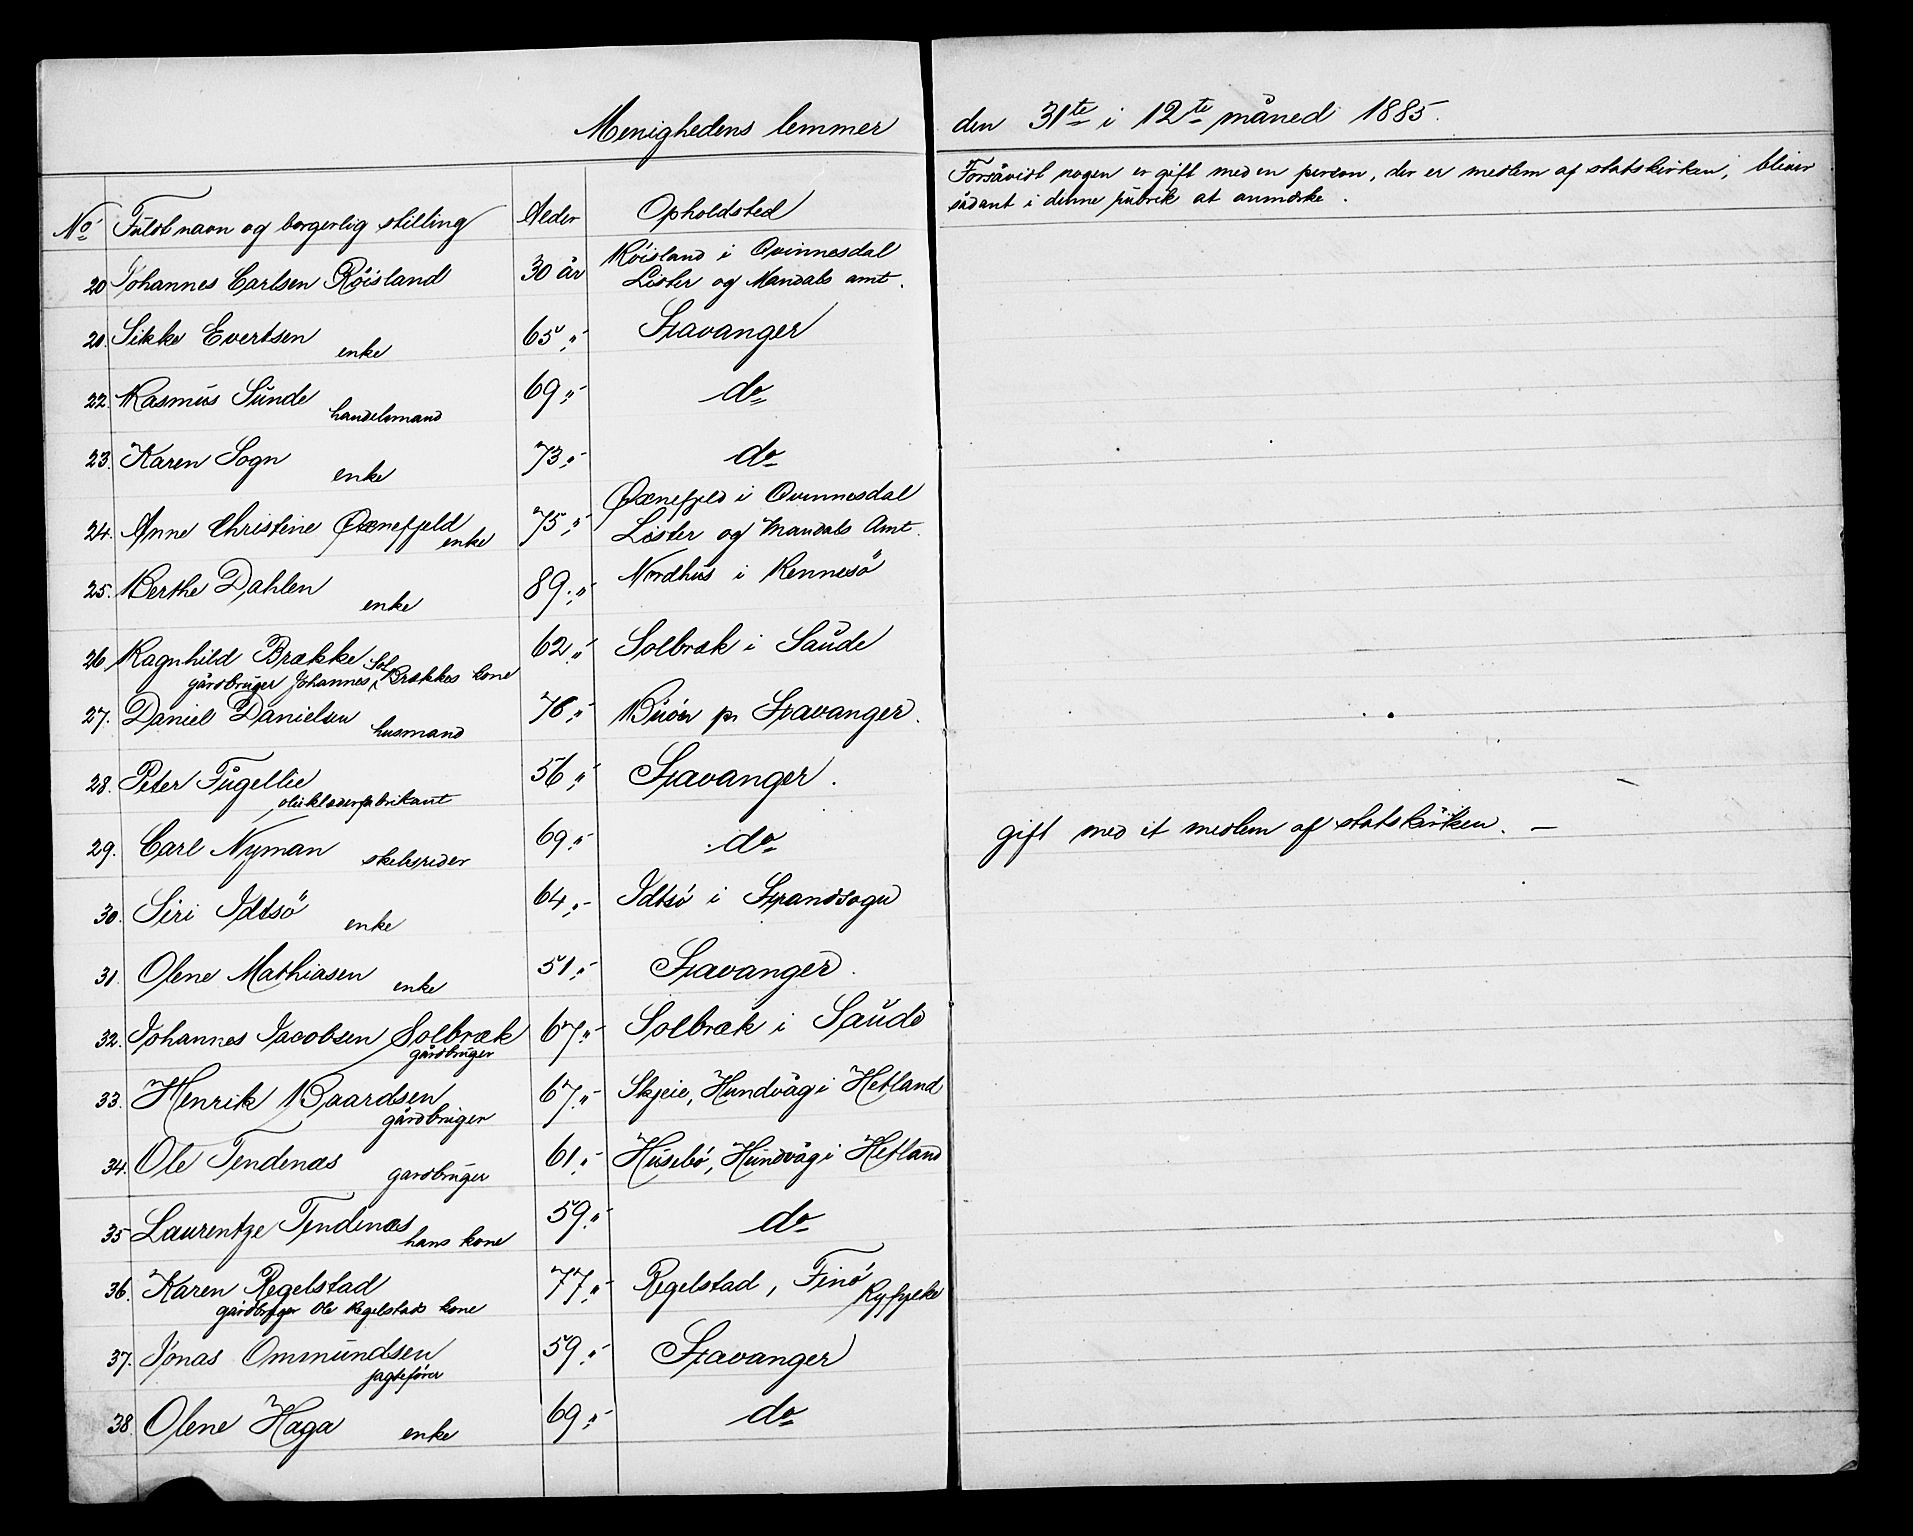 Menighedens lemmer den 31te i 12te måned 1885.
No Fuldt navn og borgerlig stilling Alder Opholdsted
Forsåvidt nogen er gift med en person, der er medlem af statskirken, bliver
sådant i denne rubrik at anmærke.
20 Johannes Carlsen Röisland 30 år Röisland i Qvinnesdal
Lister og Mandals amt.
21. Sikke Evertsen enke 65 " Stavanger
22. Rasmus Sunde handelsmand 69 " do
23. Karen Sogn enke 73 " do
24. Anne Christine Øxnefjeld enke 75 " Øxnefjeld i Qvinnesdal
Lister og Mandals Amt.
25. Berthe Dahlen enke 89 " Nordhus i Rennesö
26 Ragnhild Brække 62 " Solbræk i Saude
gårdbruger Johannes Sol Brækkes kone
27. Daniel Danielsen husmand 78 " Buöen pr Stavanger.
28. Peter Fugellie 56 " Stavanger.
olieklæderfabrikant
29. Carl Nyman skibsreder 69 " do gift med et medlem af statskirken. —
30. Siri Idtsö enke 64 " Idtsö i Strandsogn
31. Olene Mathiasen enke 51 " Stavanger.
32. Johannes Jacobsen Solbræk 67 " Solbræk i Saude
gårdbruger
33. Henrik Baardsen 67 " Skjeie, Hundvåg i Hetland
gårdbruger
34. Ole Tendenæs gardbruger 61 " Husebö, Hundvåg i Hetland
35 Laurentze Tendenæs hans kone 59 " do
36. Karen Regelstad 77 " Regelstad, Finö Ryfylke
gårdbruger Ole Regelstads kone
37. Jonas Ommundsen 59 " Stavanger
jagtefører
38 Olene Haga enke 69 " do